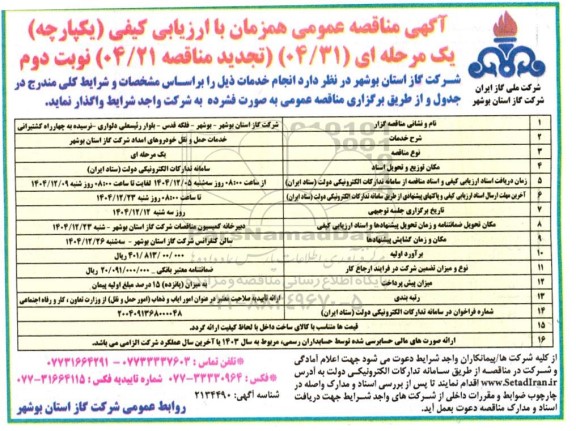 آگهی مناقصه عمومی همزمان با ارزیابی کیفی (یکپارچه)
یک مرحله ای (۰۴/۳۱) (تجدید مناقصه ۰۴/۲۱) نوبت دوم
شرکت ملی گاز ایران
شرکت گاز استان بوشهر
شرکت گاز استان بوشهر در نظر دارد انجام خدمات ذیل را براساس مشخصات و شرایط کلی مندرج در
جدول و از طریق برگزاری مناقصه عمومی به صورت فشرده به شرکت واجد شرایط واگذار نماید.
۱ نام و نشانی مناقصه گزار شرکت گاز استان بوشهر - بوشهر - فلکه قدس - بلوار رئیسعلی دلواری - نرسیده به چهارراه کشتیرانی
۲ شرح خدمات خدمات حمل و نقل خودروهای امداد شرکت گاز استان بوشهر
۳ نوع مناقصه یک مرحله ای
۴ مکان توزیع و تحویل اسناد سامانه تدارکات الکترونیکی دولت (ستاد ایران)
۵ زمان دریافت اسناد ارزیابی کیفی و اسناد مناقصه از سامانه تدارکات الکترونیکی دولت (ستاد ایران) از ساعت ۰۸:۰۰ روز سه‌شنبه ۱۴۰۴/۱۲/۰۵ لغایت تا ساعت ۰۸:۰۰ روز شنبه ۱۴۰۴/۱۲/۰۹
۶ آخرین مهلت ارسال اسناد ارزیابی کیفی و پاکتهای پیشنهادی از طریق سامانه تدارکات الکترونیکی دولت (ستاد ایران) تا ساعت ۰۸:۰۰ روز شنبه ۱۴۰۴/۱۲/۲۳
۷ تاریخ برگزاری جلسه توجیهی روز سه شنبه ۱۴۰۴/۱۲/۱۲
۸ مکان تحویل ضمانتنامه و زمان تحویل پیشنهادها و اسناد ارزیابی کیفی دبیرخانه کمیسیون مناقصات شرکت گاز استان بوشهر - شنبه ۱۴۰۴/۱۲/۲۳
۹ مکان و زمان گشایش پیشنهادها سالن کنفرانس شرکت گاز استان بوشهر - سه‌شنبه ۱۴۰۴/۱۲/۲۶
۱۰ برآورد اولیه ۴۰۱/۸۱۳/۰۰۰/۰۰۰ ریال
۱۱ نوع و میزان تضمین شرکت در فرایند ارجاع کار ضمانتنامه معتبر بانکی - ۲۰/۰۹۱/۰۰۰/۰۰۰ ریال
۱۲ میزان پیش پرداخت به میزان (پانزده) ۱۵ درصد مبلغ اولیه پیمان
۱۳ رتبه بندی ارائه تأییدیه صلاحیت معتبر در عنوان امور ایاب و ذهاب (امور حمل و نقل) از وزارت تعاون ، کار و رفاه اجتماعی
۱۴ شماره فراخوان در سامانه تدارکات الکترونیکی دولت (ستاد ایران) ۲۰۰۴۰۹۱۳۶۸۰۰۰۰۴۸
۱۵ قیمت ها متناسب با کالای ساخت داخل با لحاظ کیفیت ارائه گردد.
۱۶ ارائه صورت های مالی حسابرسی شده توسط حسابداران رسمی، مربوط به سال ۱۴۰۳ یا آخرین سال عملکرد شرکت الزامی می باشد.
از کلیه شرکت ها/پیمانکاران واجد شرایط دعوت می شود جهت اعلام آمادگی
و شرکت در مناقصه از طریق سامانه تدارکات الکترونیکی دولت به آدرس
www.SetadIran.ir اقدام نمایند تا پس از بررسی اسناد و مدارک واصله در
چارچوب ضوابط و مقررات داخلی از شرکت های واجد شرایط جهت دریافت
اسناد و مدارک مناقصه دعوت بعمل آید.
تلفن تماس : ۰۷۷۳۳۳۳۷۶۰۳ - ۰۷۷۳۱۶۶۴۲۹۱
فکس : ۳۳۳۳۰۹۶۴-۰۷۷ شماره تاییدیه فکس : ۳۱۶۶۴۱۱۵-۰۷۷
شناسه آگهی: ۲۱۳۴۴۹۰
روابط عمومی شرکت گاز استان بوشهر